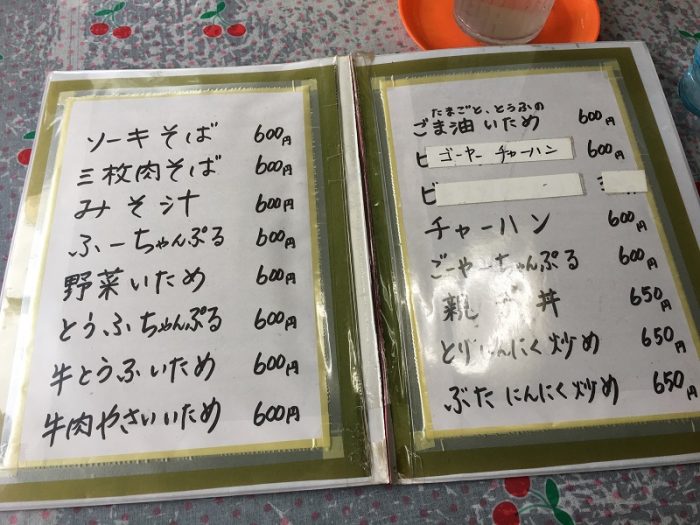 ソーキそば 600円
三枚肉そば 600円
みそ汁 600円
ふーちゃんぷる 600円
野菜いため 600円
とうふちゃんぷる 600円
牛とうふいため 600円
牛肉やさいいため 600円
たまごと、とうふの
ごま油いため 600円
ビ ゴーヤー チャーハン 600円
ビ
チャーハン 600円
ごーやーちゃんぷる 600円
親子丼 650円
とりにんにく炒め 650円
ぶたにんにく炒め 650円